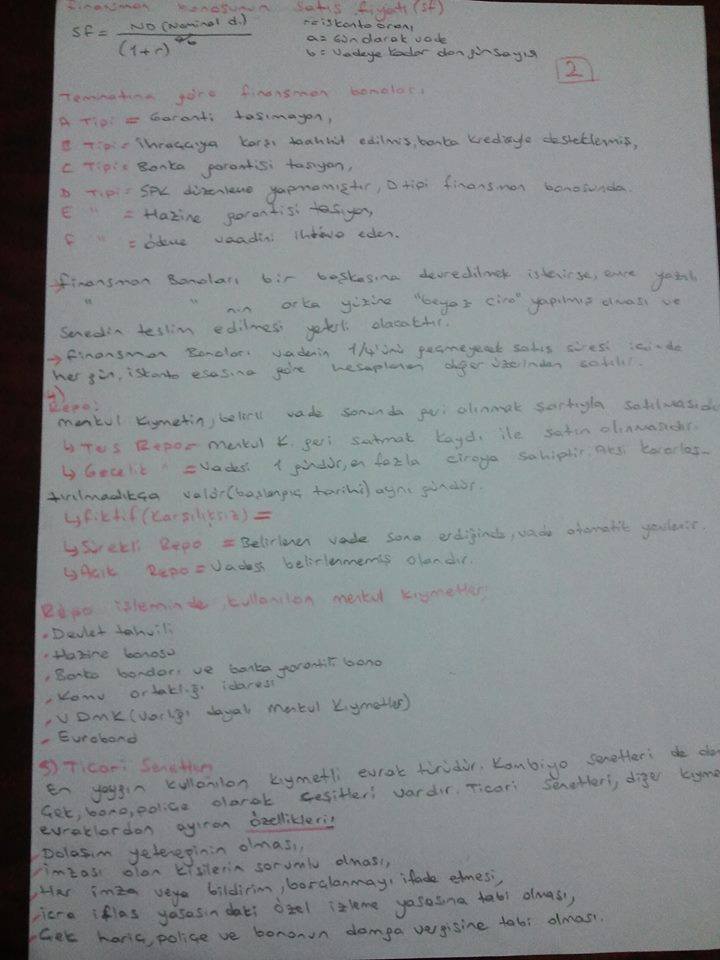 Finansman bonosunun satış fiyatı (Sf)
Sf = ND (Nominal d.) / (1+r)^a/b
r = iskonto oranı,
a = Gün olarak vade
b = Vadeye kadar olan gün sayısı
2
Teminatına göre finansman bonoları,
A Tipi = Garanti taşımayan,
B Tipi = İhraççıya karşı taahhüt edilmiş, banka kredisiyle desteklenmiş,
C Tipi = Banka garantisi taşıyan,
D Tipi = SPK düzenleme yapmamıştır, D tipi finansman bonosunda.
E " = Hazine garantisi taşıyan,
F " = ödeme vaadini ihtiva eden.
→ finansman Bonoları bir başkasına devredilmek istenirse, emre yazılı
" " nın arka yüzüne "beyaz ciro" yapılmış olması ve
senedin teslim edilmesi yeterli olacaktır.
→ Finansman Bonoları vadenin 1/4'ünü geçmeyecek satış süresi içinde
her gün, iskonto esasına göre hesaplanan değer üzerinden satılır.
4)
Repo:
menkul kıymetin, belirli vade sonunda geri alınmak şartıyla satılmasıdır
↳ Ters Repo = menkul K. geri satmak kaydı ile satın alınmasıdır.
↳ Gecelik " = Vadesi 1 gündür, en fazla ciroya sahiptir. Aksi kararlaş-
tırılmadıkça valör (başlangıç tarihi) aynı gündür.
↳ fiktif (Karşılıksız) =
↳ Sürekli Repo = Belirlenen vade sona erdiğinde, vade otomatik yenilenir.
↳ Açık Repo = Vadesi belirlenmemiş olandır.
Repo işleminde kullanılan menkul kıymetler;
Devlet tahvili
Hazine bonosu
Banka bonoları ve banka garantili bono
Kamu ortaklığı idaresi
VDMK (Varlığı dayalı Menkul Kıymetler)
Eurobond
5) Ticari Senetler
En yaygın kullanılan kıymetli evrak türüdür. Kambiyo senetleri de
Çek, bono, poliçe olarak çeşitleri vardır. Ticari senetleri, diğer kıyme
evraklardan ayıran özellikleri;
Dolaşım yeteneğinin olması,
imzası olan kişilerin sorumlu olması,
Her imza veya bildirim, borçlanmayı ifade etmesi,
icra iflas yasasındaki özel izleme yasasına tabi olması,
Çek hariç, poliçe ve bononun damga vergisine tabi olması.